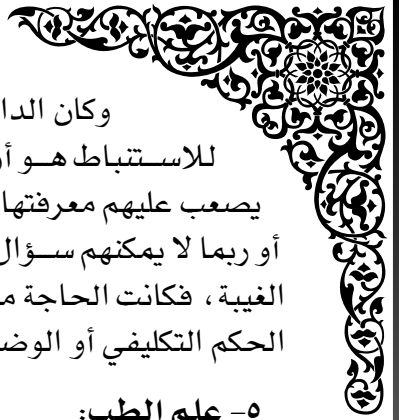 وكان الدا
للاستنباط هو أن
يصعب عليهم معرفتها
أو ربما لا يمكنهم سؤال
الغيبة، فكانت الحاجة م
الحكم التكليفي أو الوض
٥- علم الطب: